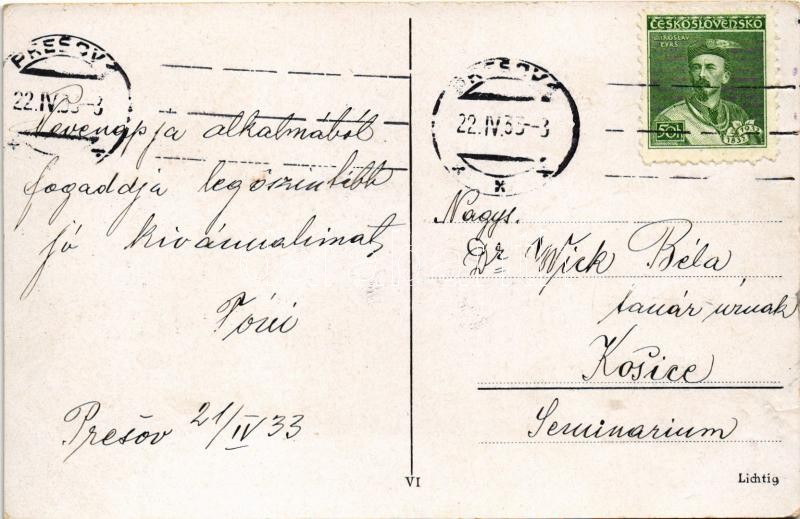 PREŠOV 1
22.IV.33-8
Nevenapja alkalmából
fogaddja legőszintébb
jó kivánnalimat
Tóni
Prešov 21/IV 33
VI
PREŠOV 1
22.IV.33-8
ČESKOSLOVENSKO
MIROSLAV
TYRŠ
50h
1932
Nagys.
Dr Wick Béla
tanár úrnak
Košice
Seminarium
Lichtig